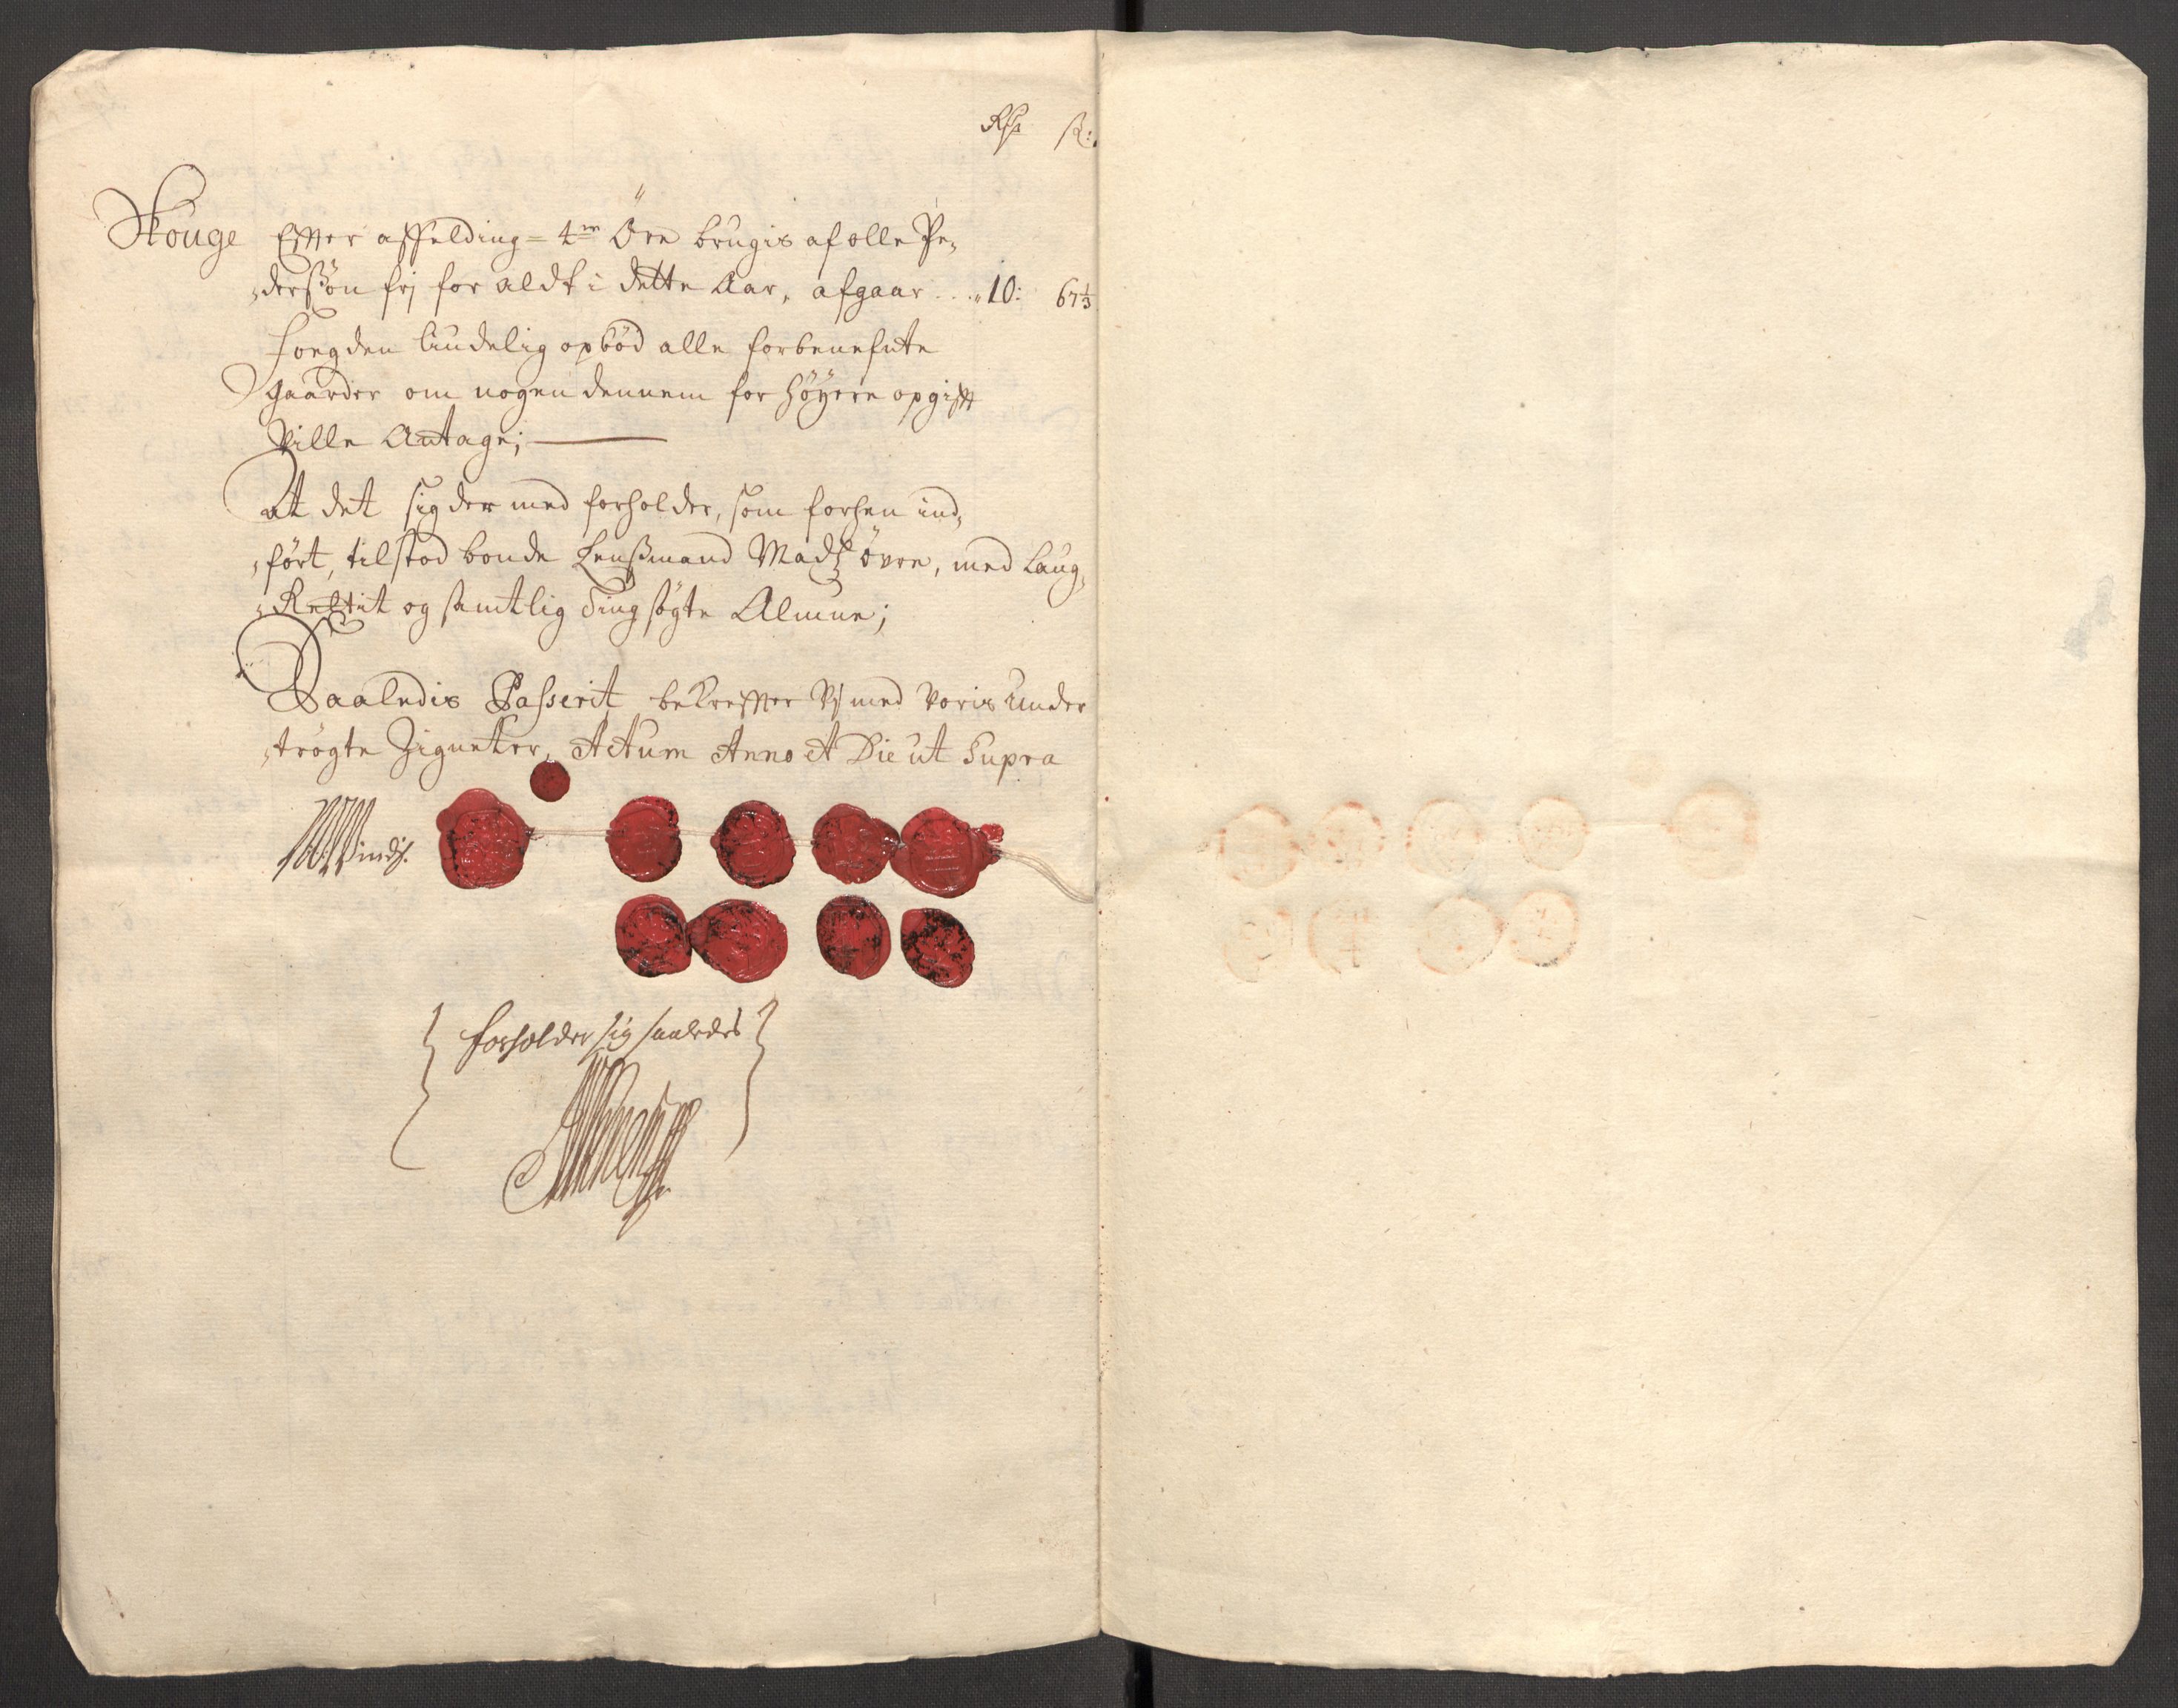 Rdr ß:
Skouge Effter affelding = 4re Öre brugis af olle Pe,
,derßön frj for aldt i dette Aar, afgaar ... 10: 67⅓
Fogden liudelig opböd alle forbenefnte
Gaarder om nogen dennem for höyere opgifft
Ville Antage;
At det sig der med forholder, som forhen ind,
,fört, tilstod bonde Lenßmand Madtz övre, med Laug,
,Rettit og samtlig Ting søgte Almue;
Saaledis Passerit bekreffter Vj med Voris Under
,trögte Zigneter, Actum Anno et Die ut Supra
forholder sig saaledes